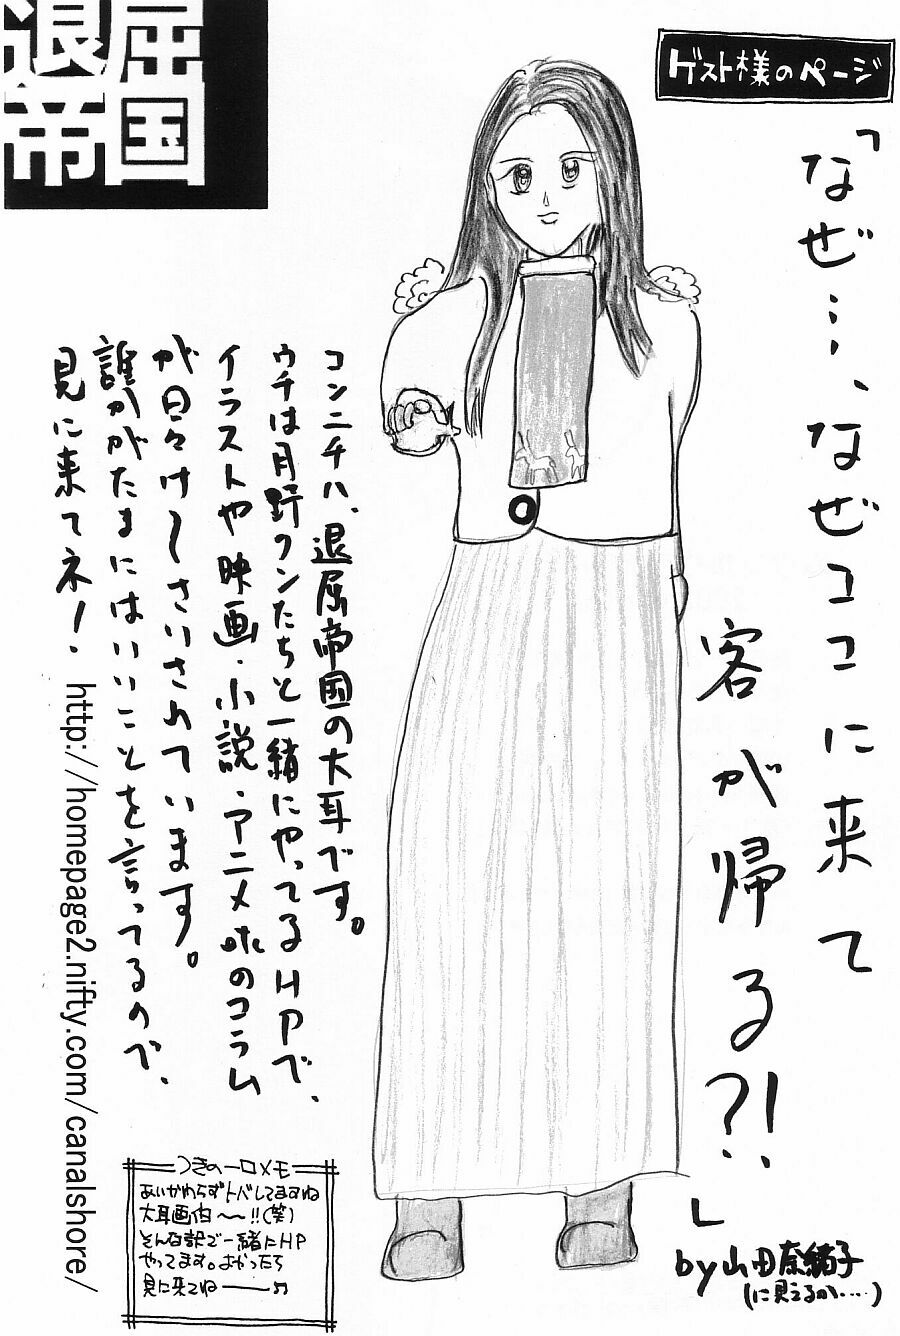 退屈
帝国
ゲスト様のページ
「なぜ…、なぜココに来て
客が帰る?!」
by山田奈緒子
(に見えるか‥‥)
コンニチハ、退屈帝国の大耳です。
ウチは月野クンたちと一緒にやってるHPで、
イラストや映画・小説・アニメetcのコラム
が日々け〜さいされています。
誰かがたまにはいいことを言ってるので、
見に来てネ!
http://homepage2.nifty.com/canalshore/
つきの一口メモ
あいかわらずトバしてますね
大耳画伯〜〜!!(笑)
そんな訳で一緒にHP
やってます。よかったら
見に来てね――♫